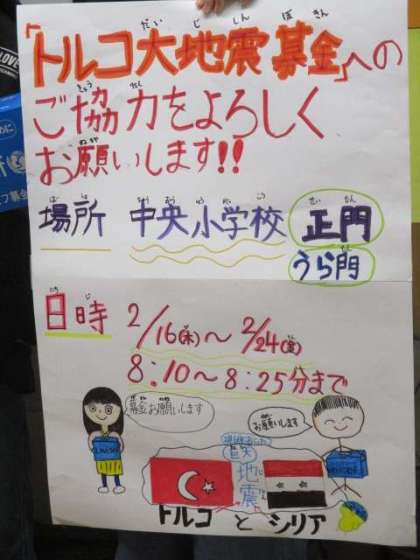 「トルコ大地震募金」への
ご協力をよろしく
お願いします!!
場所 中央小学校 正門
うら門
日時 2/16(木)〜2/24(金)
8:10〜8:25分まで
募金お願いします
お願いします
地震
トルコ と シリア